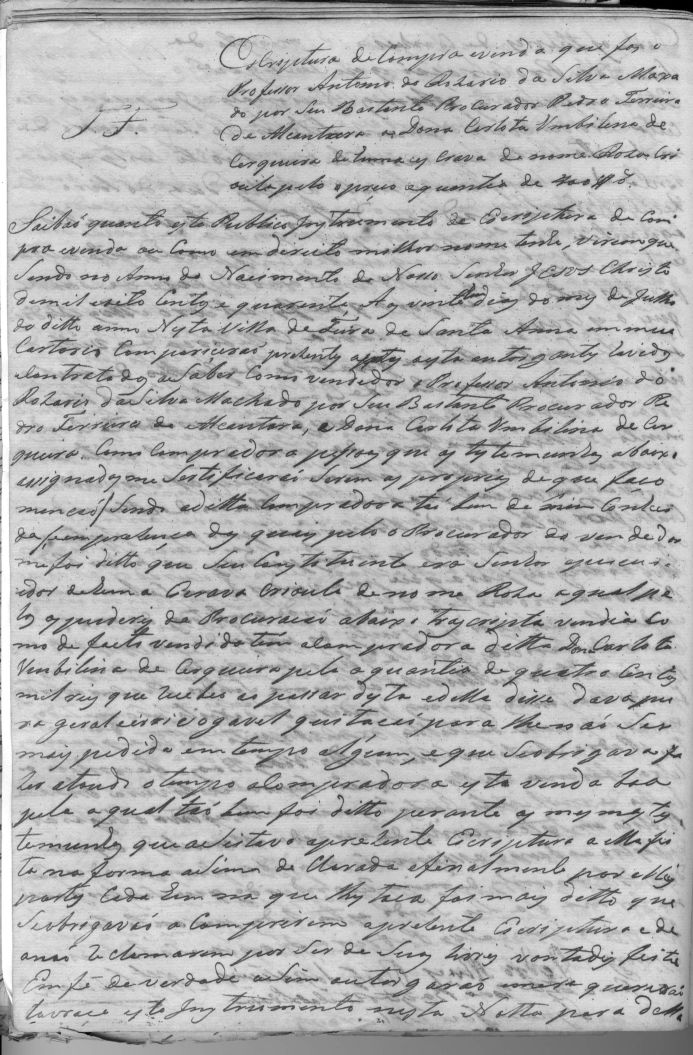 Escriptura de Compra e venda que fas o
Professor Antonio do Rozario da Silva Maxa
do por Seu Bastante Procurador Pedro Ferreira
J. F.
de Alcantara a Dona Carlota Umbilina de
Cerqueira de huma escrava de nome Rosa Cri
oula pelo preço e quantia de 400$
Saibaõ quanto este Publico Instrumento de Escriptura de Com
pra e venda ou Como em direito milhor nome tenha, virem que
Sendo no Anno do Nacimento de Nosso Senhor JESUS Christo
de mil e oito Centos e quarenta, Aos vinte dias do mes de Julho
do ditto anno Nesta Villa de Feira de Santa Anna em meu
Cartorio Compareceraõ prezentes partes a esta outorgantes havidos
e Contratados a Saber Como vendedor o Professor Antonio do
Rozario da Silva Machado por Seu Bastante Procurador Pe
dro Ferreira de Alcantara, e Dona Carlota Umbilina de Cer
queira, Como Compradora pessoas que as testemunhas abaixo
assignadas me Sertificaraõ Serem as proprias de que faço
mençaõ/ Sendo a ditta Compradora taõ bem de mim Conheci
da/ em prezença das quais pelo o Procurador do vendedor
me foi ditto que Seu Constetuente era Senhor e possui
dor de huma Escrava Crioula de nome Rosa a qual pe
los poderes da Procuraçaõ abaixo trascripta vendia Co
mo de facto vendido tem a Compradora ditta Dona Carlota
Umbilina de Cerqueira pela a quantia de quatro Centos
mil reis que recebeo ao passar desta e della disse dava pu
ra geral e irrivogavel quitaçaõ para lhe naõ Ser
mais pedida em tempo algum, e que Se obrigava a fa
zer a todo o tempo a Compradora esta venda boa
pela a qual taõ bem foi ditto perante as mesmas tes
temunhas que aSeitava a prezente Escriptura a Ella fei
ta na forma aSima de Clarada e finalmente por Ellas
partes Cada huma na que lhes toca foi mais ditto que
Se obrigavaõ a Comprirem a prezente Escriptura e de
a naõ reclamarem por Ser de Suas livres vontades feita
Em fé de verdade aSim outorgaraõ e me requereraõ
lavrace este Instrumento nesta Notta para della